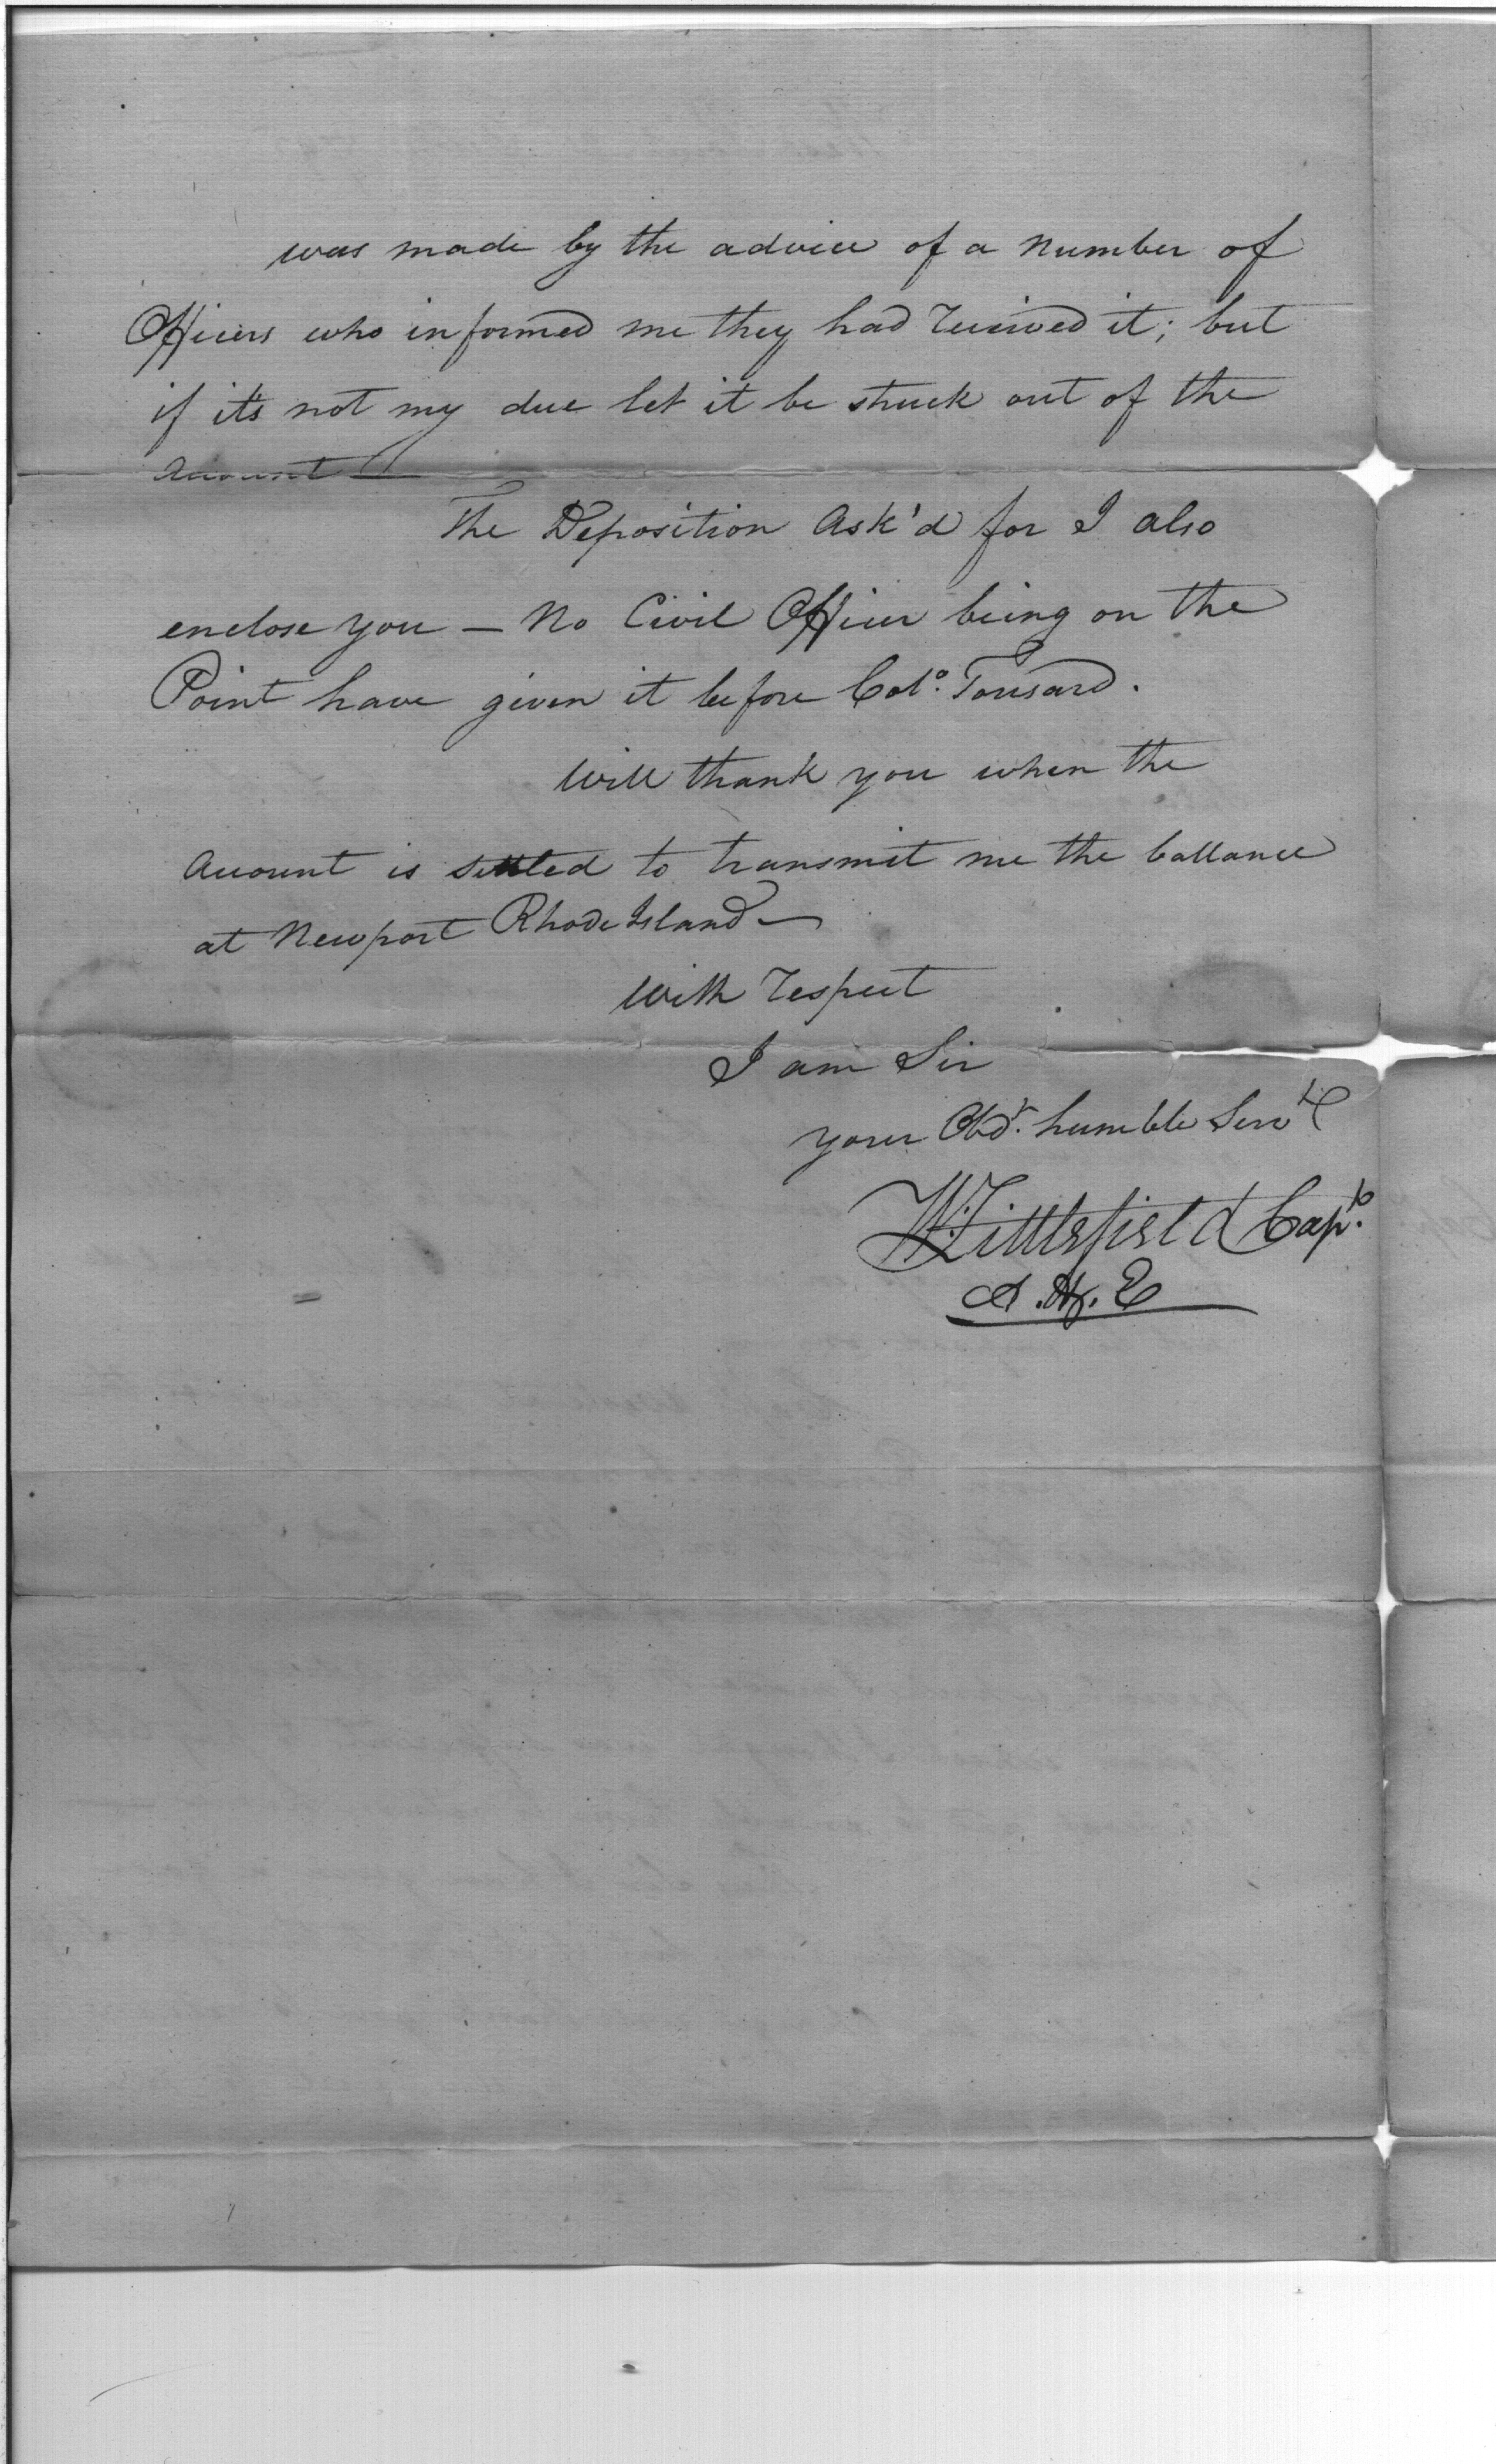 was made by the advice of a number of
Officers who informed me they had received it; but
if its not my due let it be struck out of the
Account —
The Deposition Ask'd for I also
enclose you — No Civil Officer being on the
Point have given it before Colo. Tousard.
Will thank you when the
Account is settled to transmit me the ballance
at Newport Rhode Island —
With respect
I am Sir
your Obdt. humble Servt
W: Littlefield Capt.
A. & E